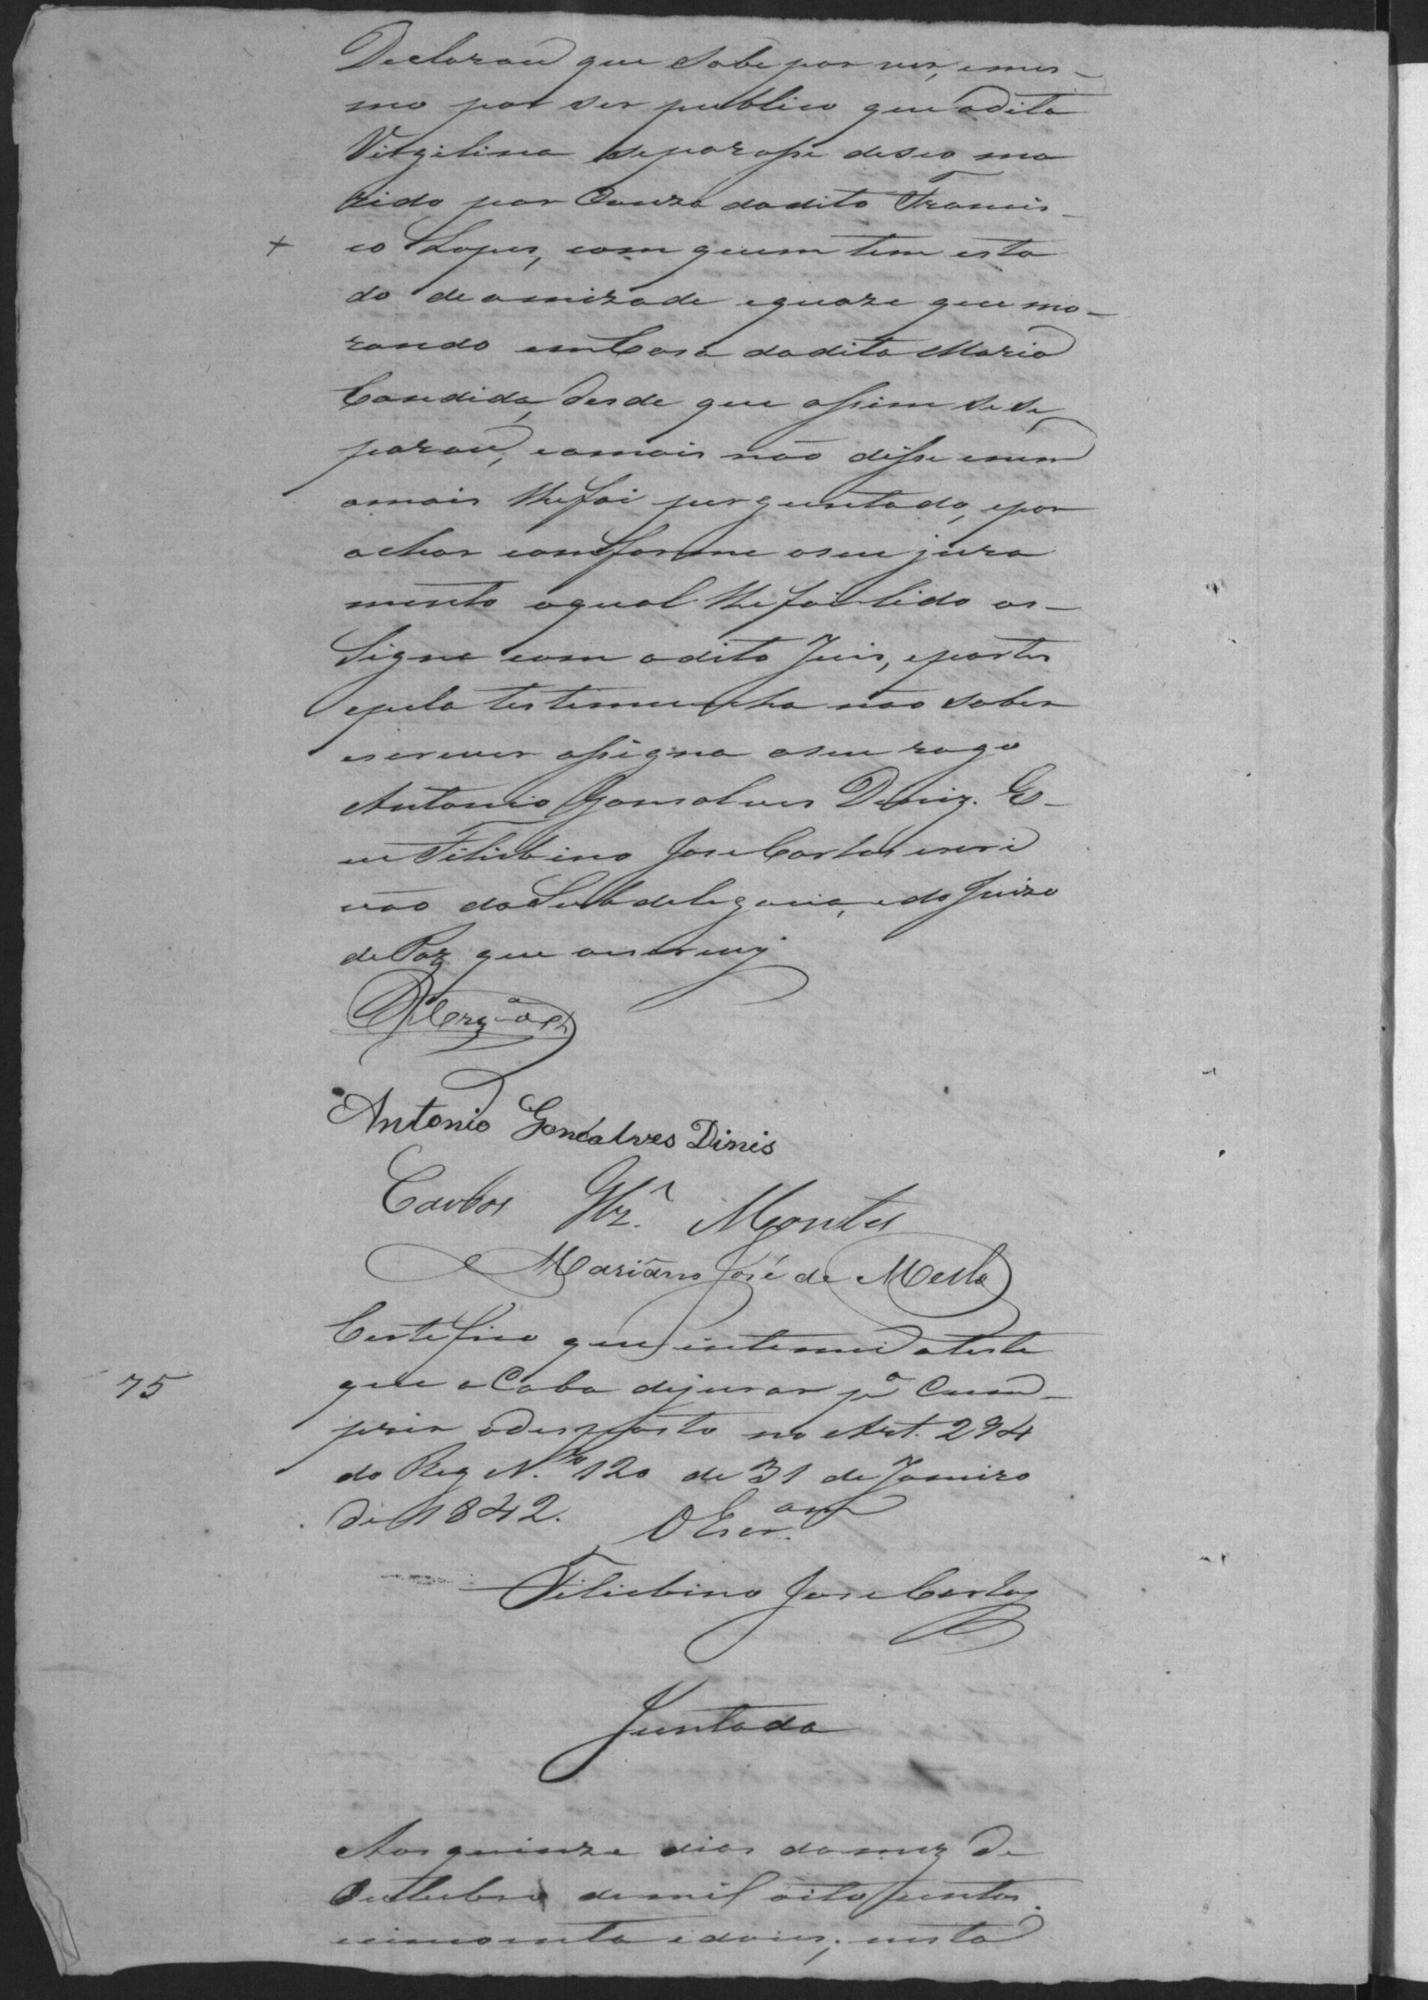 Declarou que sabe por ver, e mes-
mo por ser publico que a dita
Virgilina separasse de seo ma
rido por Cauza do dito Francis-
co Lopes, com quem tem esta
do de amizade e quaze que mo-
rando em Casa da dita Maria
Candida, desde que assim se se
parou, e a mais não disse e nem
a mais lhe foi perguntado, e por
achar comforme o seu jura
mento o qual lhe foi lido as-
Signa com o dito Juis, e partes
e pela testemunha não saber
escrever assigna a seu rogo
Antonio Gonsalves Diniz. E-
eu Filisbino Jose Carlos escri
vão da Subdelegacia, e do Juizo
de Paz que o escrevy
Antonio Goncalves Dinis
Carlos Montes
Mariano José de Mello
Certefico que entemei a teste
75
que a Caba de jurar pa Cum-
prir o desposto no Art. 294
do Reg N.º 120 de 31 de Janeiro
de 1842. O Escr.am
Filisbino Jose Carlos
Juntada
Aos quinze dias do mez de
Outubro de mil oito sentos
cincoenta e dois, nesta